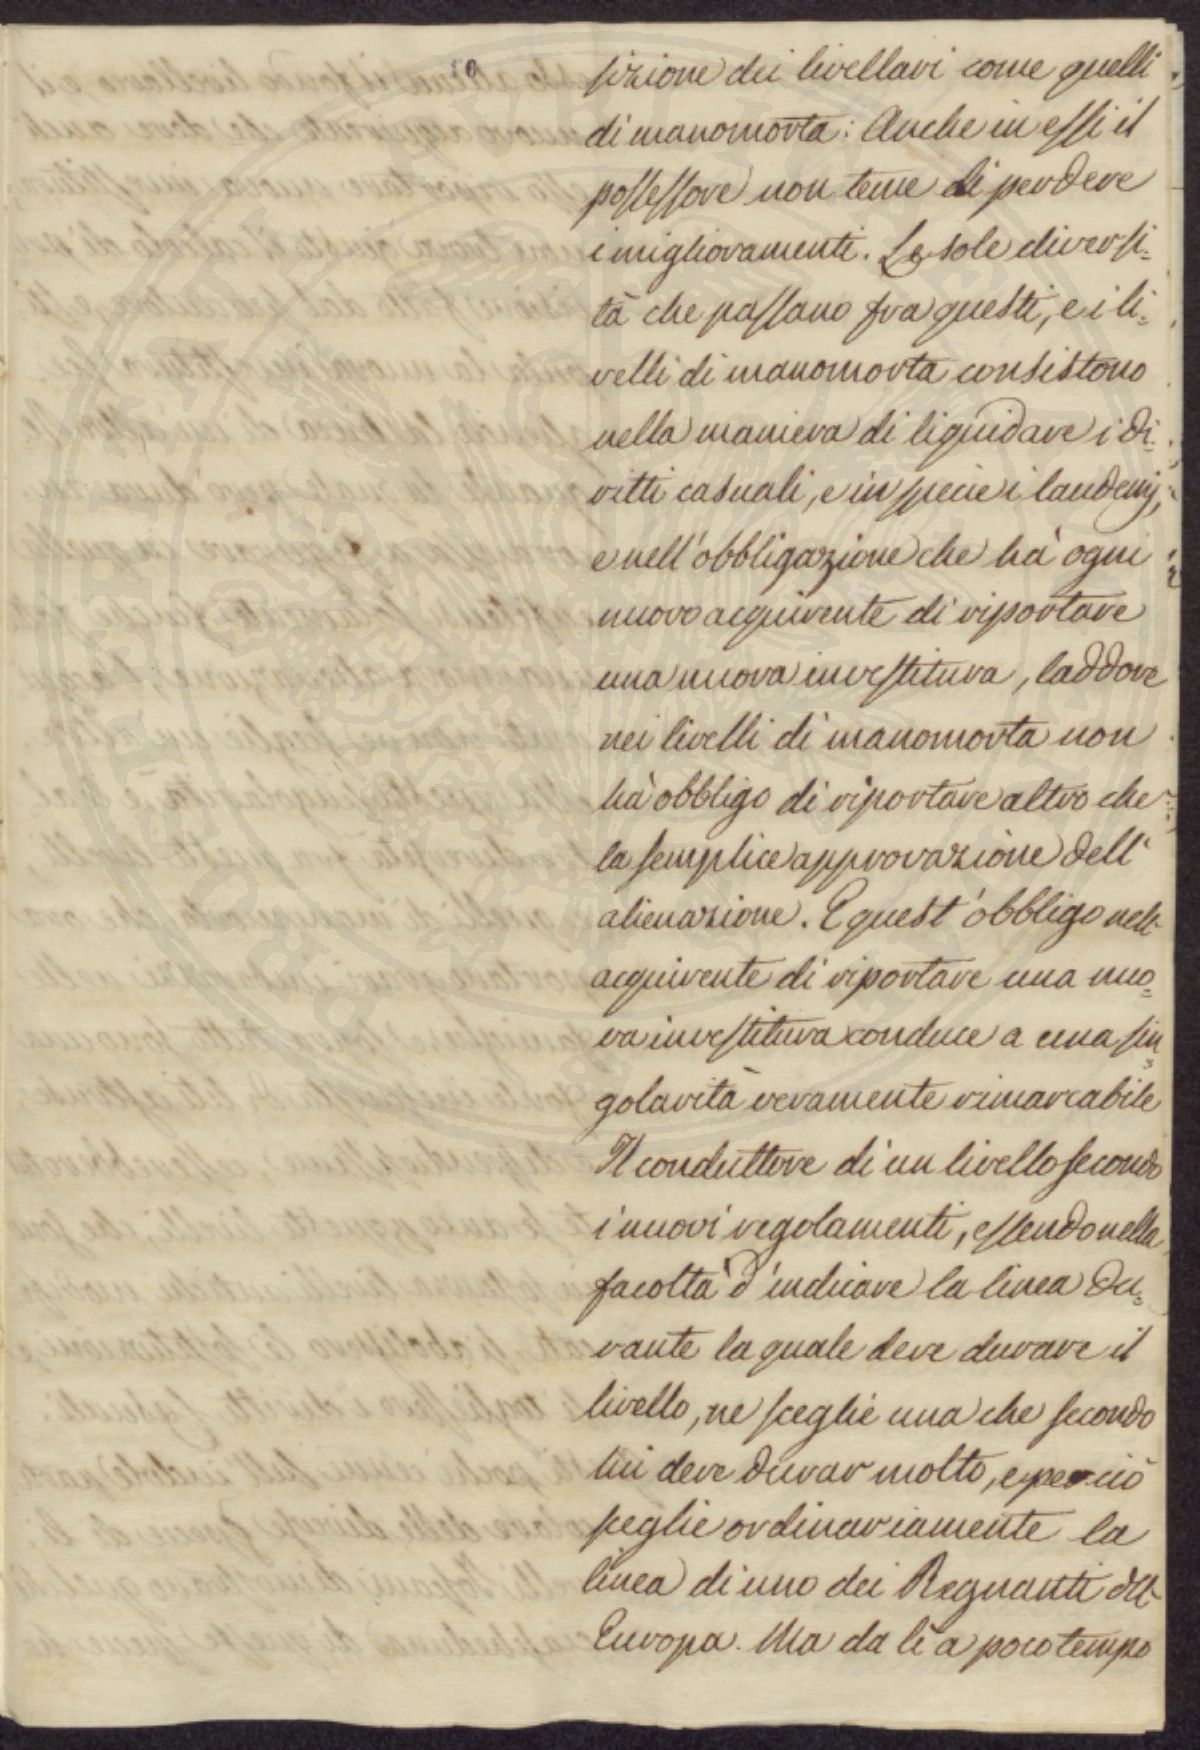 10
sizione dei livellari come quelli
di manomorta: Anche in essi il
possessore non teme di perdere
i miglioramenti. Le sole diversi-
tà che passano fra questi, e i li-
velli di manomorta consistono
nella maniera di liquidare i di-
ritti casuali, e in specie i laudemj,
e nell'obbligazione che hà ogni
nuovo acquirente di riportare
una nuova investitura, laddove
nei livelli di manomorta non
hà obbligo di riportare altro che
la semplice approvazione dell'
alienazione. E quest'obbligo nell'
acquirente di riportare una nuo-
va investitura conduce a una sin-
golarità veramente rimarcabile
Il conduttore di un livello secondo
i nuovi regolamenti, essendo nella
facoltà d'indicare la linea du-
rante la quale deve durare il
livello, ne sceglie una che secondo
lui deve durar molto, e perciò
sceglie ordinariamente la
linea di uno dei Regnanti dell'
Europa. Ma da lì a poco tempo